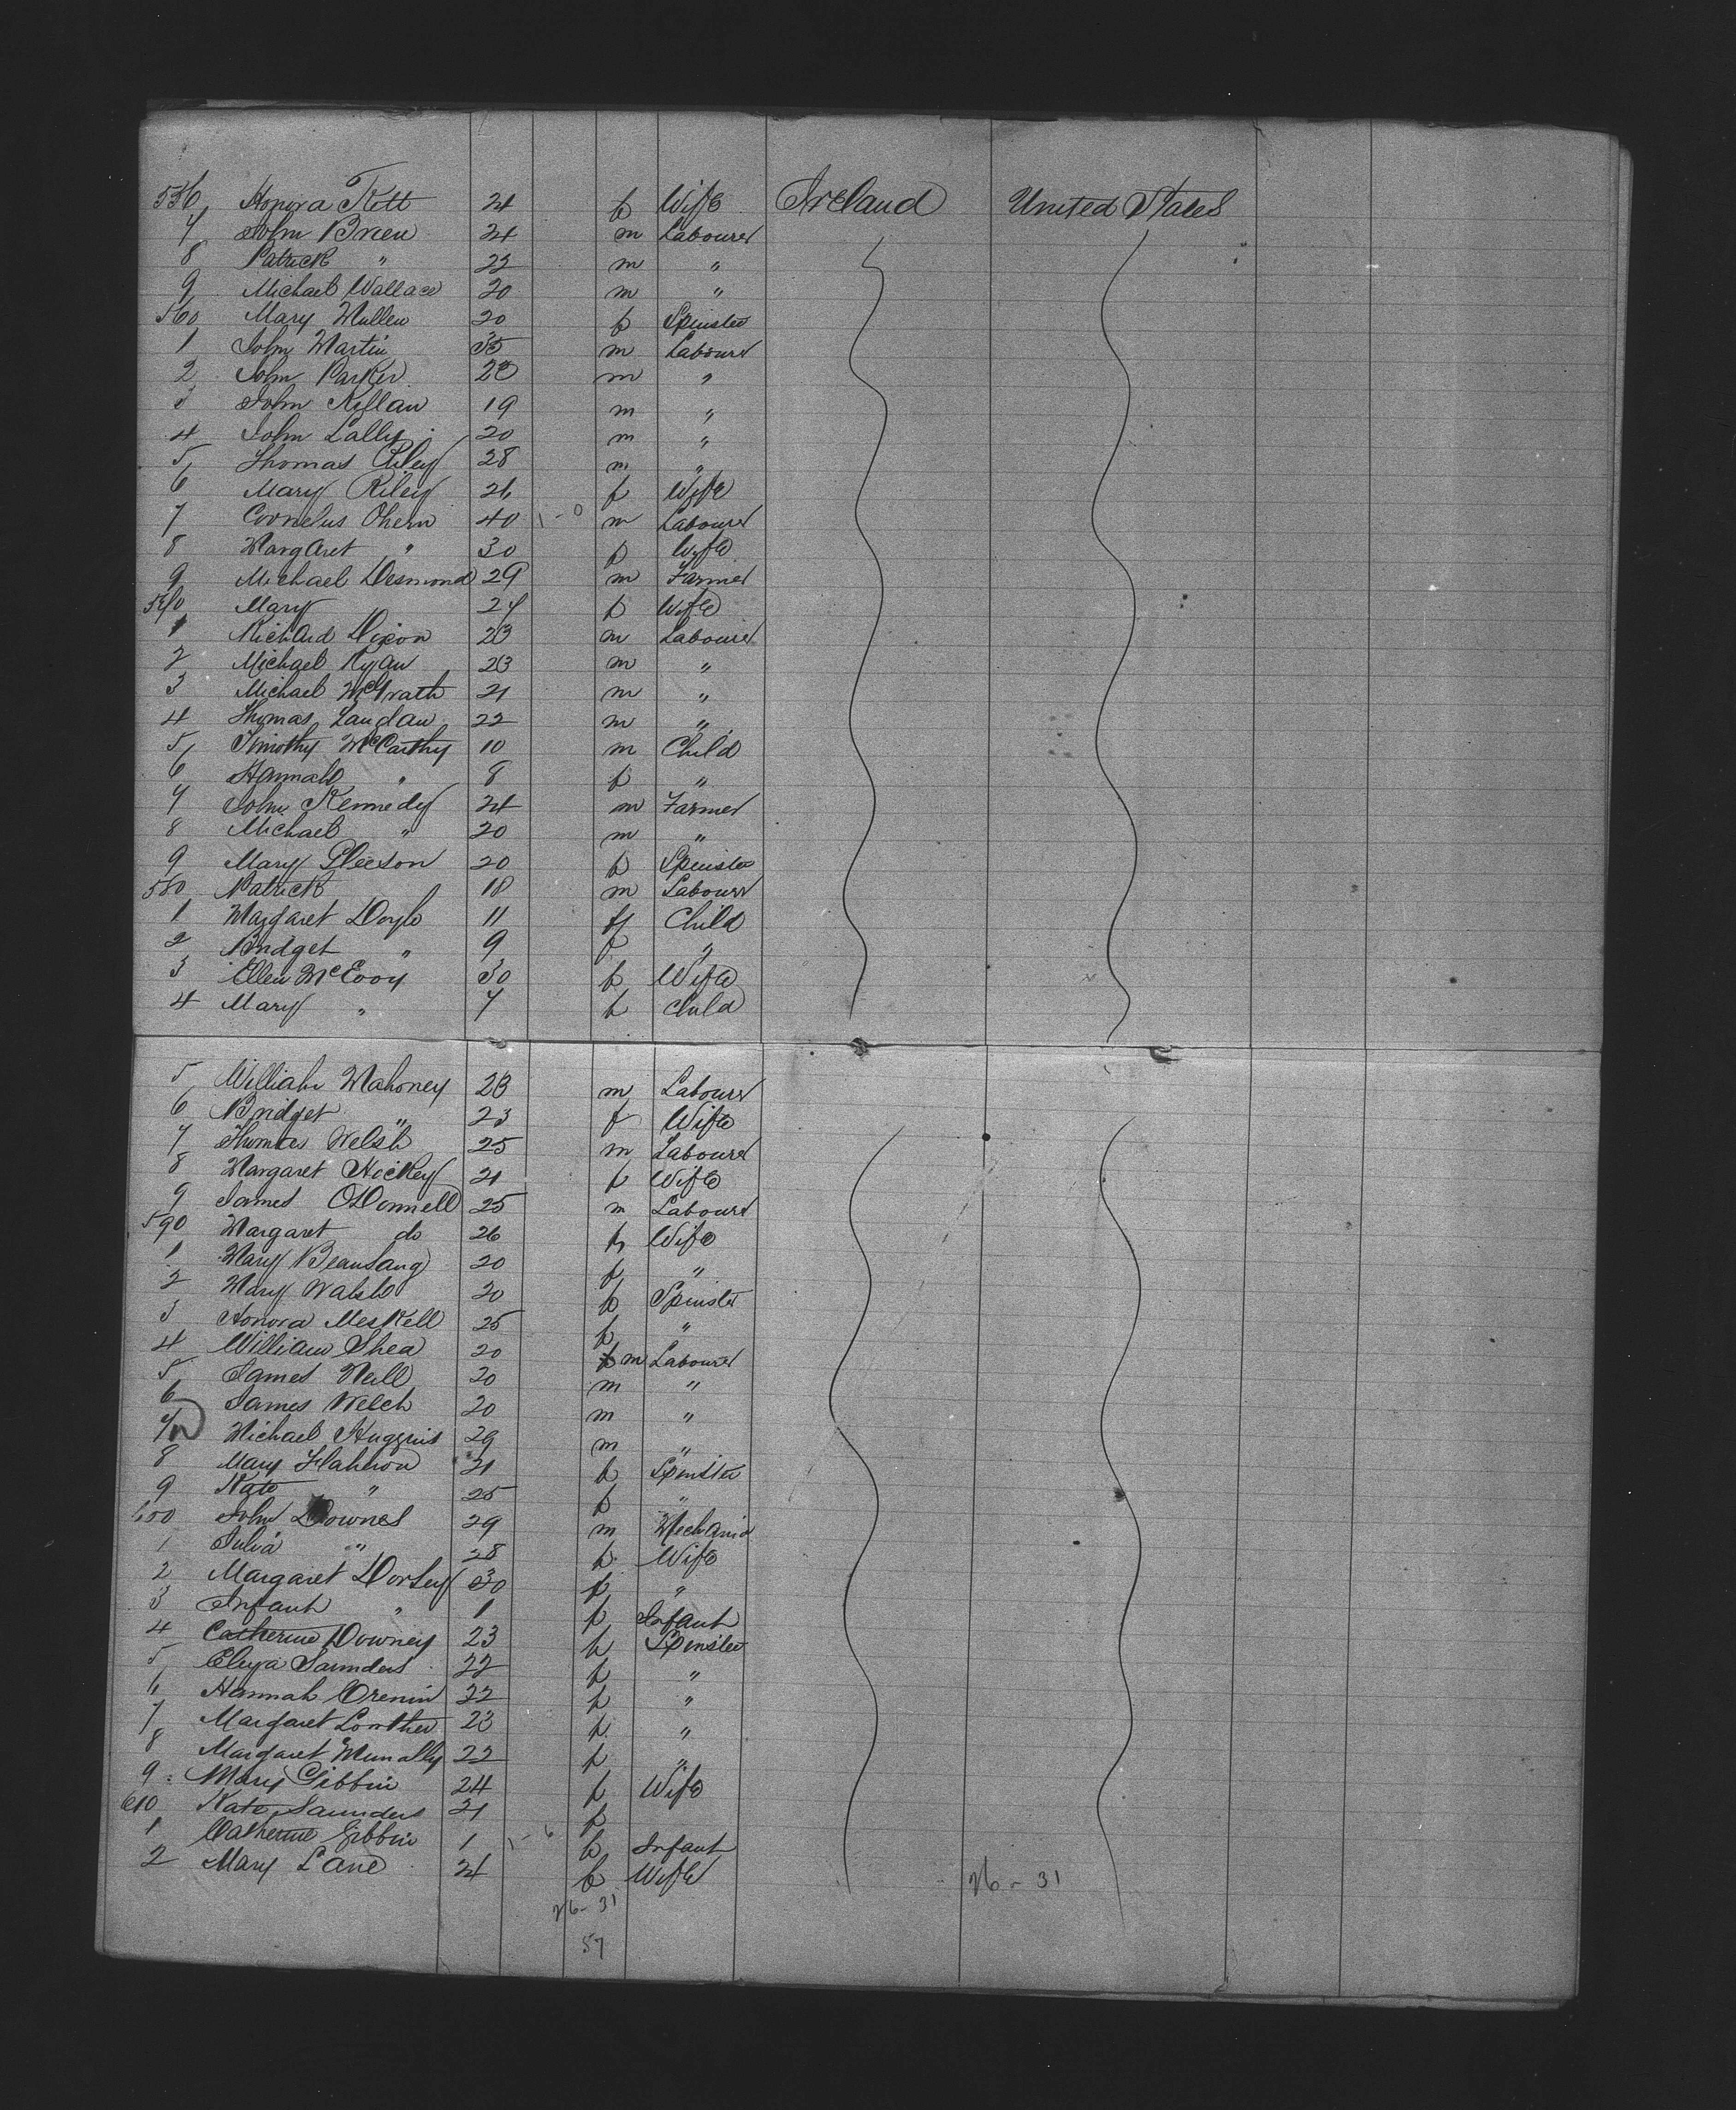 556 Honora Kett 24 f Wife Ireland United States
7 John Breen 24 m Labourer
8 Patrick " 22 m "
9 Michael Wallace 20 m "
560 Mary Mullen 20 f Spinster
1 John Martin 35 m Labourer
2 John Parker 20 m "
3 John 19 m "
4 John Lally 20 m "
5 Thomas Riley 28 m "
6 Mary Riley 26 f Wife
7 Cornelus Ohern 40 1-0 m Labourer
8 Margaret " 30 f Wife
9 Michael Desmond 29 m Farmer
570 Mary 27 f Wife
1 Richard Dixon 23 m Labourer
2 Michael Ryan 23 m "
3 Michael McGrath 21 m "
4 Thomas 22 m "
5 Timothy McCarthy 10 m Child
6 Hannah " 8 f "
7 John Kennedy 24 m Farmer
8 Michael " 20 m "
9 Mary Gleeson 20 f Spinster
580 Patrick 18 m Labourer
1 Margaret Doyle 11 f Child
2 Bridget " 9 f "
3 Ellen McEvoy 30 f Wife
4 Mary " 7 f Child
5 William Mahoney 23 m Labourer
6 Bridget " 23 f Wife
7 Thomas Welsh 25 m Labourer
8 Margaret Hickey 21 f Wife
9 James ODonnell 25 m Labourer
590 Margaret do 26 f Wife
1 Mary Beausang 20 f "
2 Mary Walsh 20 f Spinster
3 Honora Meskell 25 f "
4 William Shea 20 m Labourer
5 James Neill 20 m "
6 James Welch 20 m "
7 Michael Huggins 29 m "
8 Mary 21 f Spinster
9 Kate " 25 f "
600 John Downes 29 m Mechanic
1 Julia " 28 f Wife
2 Margaret Dorsey 30 f "
3 Infant " 1 f Infant
4 Catherine Downey 23 f Spinster
5 Eliza Saunders 22 f "
6 Hannah Cremin 22 f "
7 Margaret Lowther 23 f "
8 Margaret 22 f "
9 Mary Gibbin 24 f Wife
610 Kate Saunders 21 f
1 Catherine Gibbin 1 1-6 f Infant
2 Mary Lane 24 f Wife
26-31 26-31
57